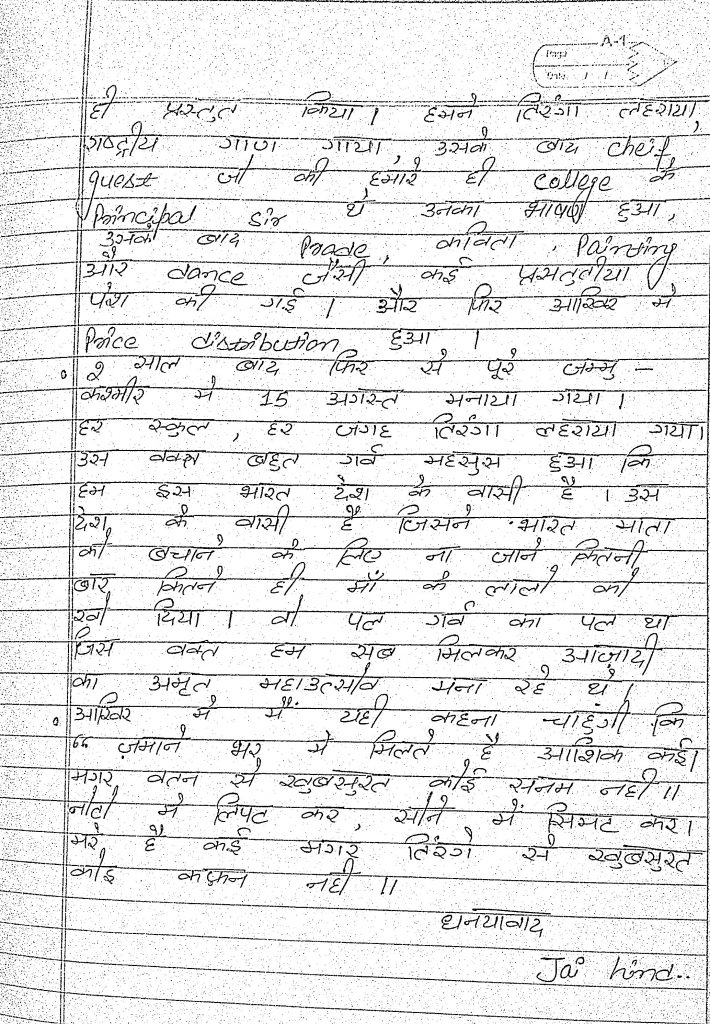 A-1
Page
Date / /
ही प्रस्तुत किया। हमने तिरंगा लहराया,
राष्ट्रीय गाण गाया, उसके बाद cheif
guest जो की हमारे ही college के
Principal sir थे उनका भाषण हुआ,
उसके बाद Prade, कविता, Painting
और dance जैसी कई प्रसतुतीया
पेश की गई। और फिर आखिर मे
Price distribution हुआ।
2 साल बाद फिर से पूरे जम्मु -
कश्मीर मे 15 अगस्त मनाया गया।
हर स्कुल, हर जगह तिरंगा लहराया गया।
उस वक्त बहुत गर्व महसुस हुआ कि
हम इस भारत देश के वासी है। उस
देश के वासी है जिसने भारत माता
को बचाने के लिए ना जाने कितनी
बार कितने ही माँ के लालो को
खो दिया। वो पल गर्व का पल था
जिस वक्त हम सब मिलकर आज़ादी
का अमृत महाउत्सोव मना रहे थे।
आखिर मे मैं यही कहना चाहुंगी कि
“ ज़माने भर मे मिलते है आशिक कई।
मगर वतन से खुबसुरत कोई सनम नही॥
नोटो मे लिपट कर, सोने में सिमट कर।
मरे है कई मगर तिरंगे से खुबसुरत
कोइ कफ़न नही॥
धनयावाद
Jai hind..